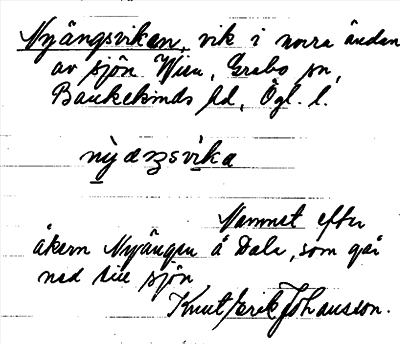 Nyängsviken, vik i norra änden
av sjön Wien, Grebo sn,
Bankekinds hd, Ögl. l.
nỳæŋsvika
Namnet efter
åkern Nyängen å Dala, som går
ned till sjön
Knut Erik Johansson.